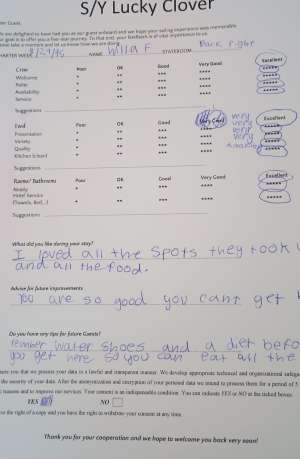 S/Y Lucky Clover
Dear Guest,
We are delighted to have had you as our guest onboard and we hope your sailing experience was memorable.
Our goal is to offer you a five-star journey. To that end, your feedback is of vital importance to us.
Please take a moment and let us know how we are doing.
CHARTER WEEK NAME Willa F STATEROOM Back right
Crew Poor OK Good Very Good Excellent
Welcome * ** *** **** *****
Polite * ** *** **** *****
Availability * ** *** **** *****
Service * ** *** **** *****
Suggestions
Food Poor OK Good Very Good Excellent
very
Presentation * ** *** **** ***** very
Variety * ** *** **** ***** very
Quality * ** *** **** ***** very
Kitchen School * ** *** **** *****
Suggestions
Rooms/ Bathrooms Poor OK Good Very Good Excellent
Hotel Service
(Towels, Bed,..) * ** *** **** *****
Suggestions
What did you like during your stay?
I loved all the spots they took
and all the food.
Advice for future improvements
You are so good you cant get
Do you have any tips for future Guests?
remember water shoes and a diet befo
you get here so you can eat all the
that we process your data in a lawful and transparent manner. We develop appropriate technical and organizational
the security of your data. After the anonymization and encryption of your personal data we intend to process them for a period of 5
reasons and to improve our services. Your consent is an indispensable condition. You can indicate YES or NO in the ticked boxes:
YES NO
the right of a copy and you have the right to withdraw your consent at any time.
Thank you for your cooperation and we hope to welcome you back very soon!